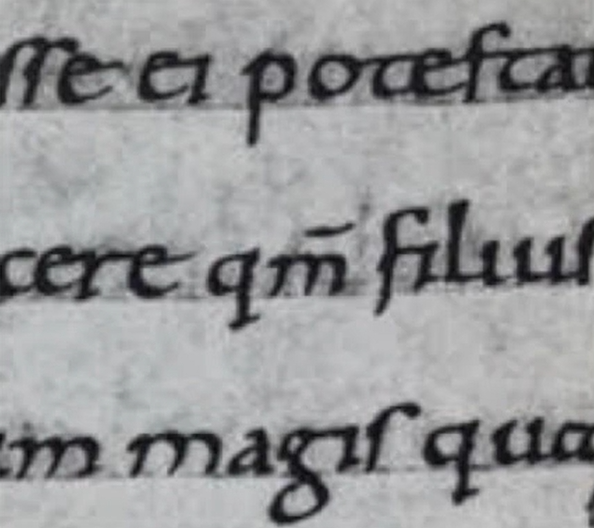 sse ei potesta
cere qm̄ filius
um magis qua